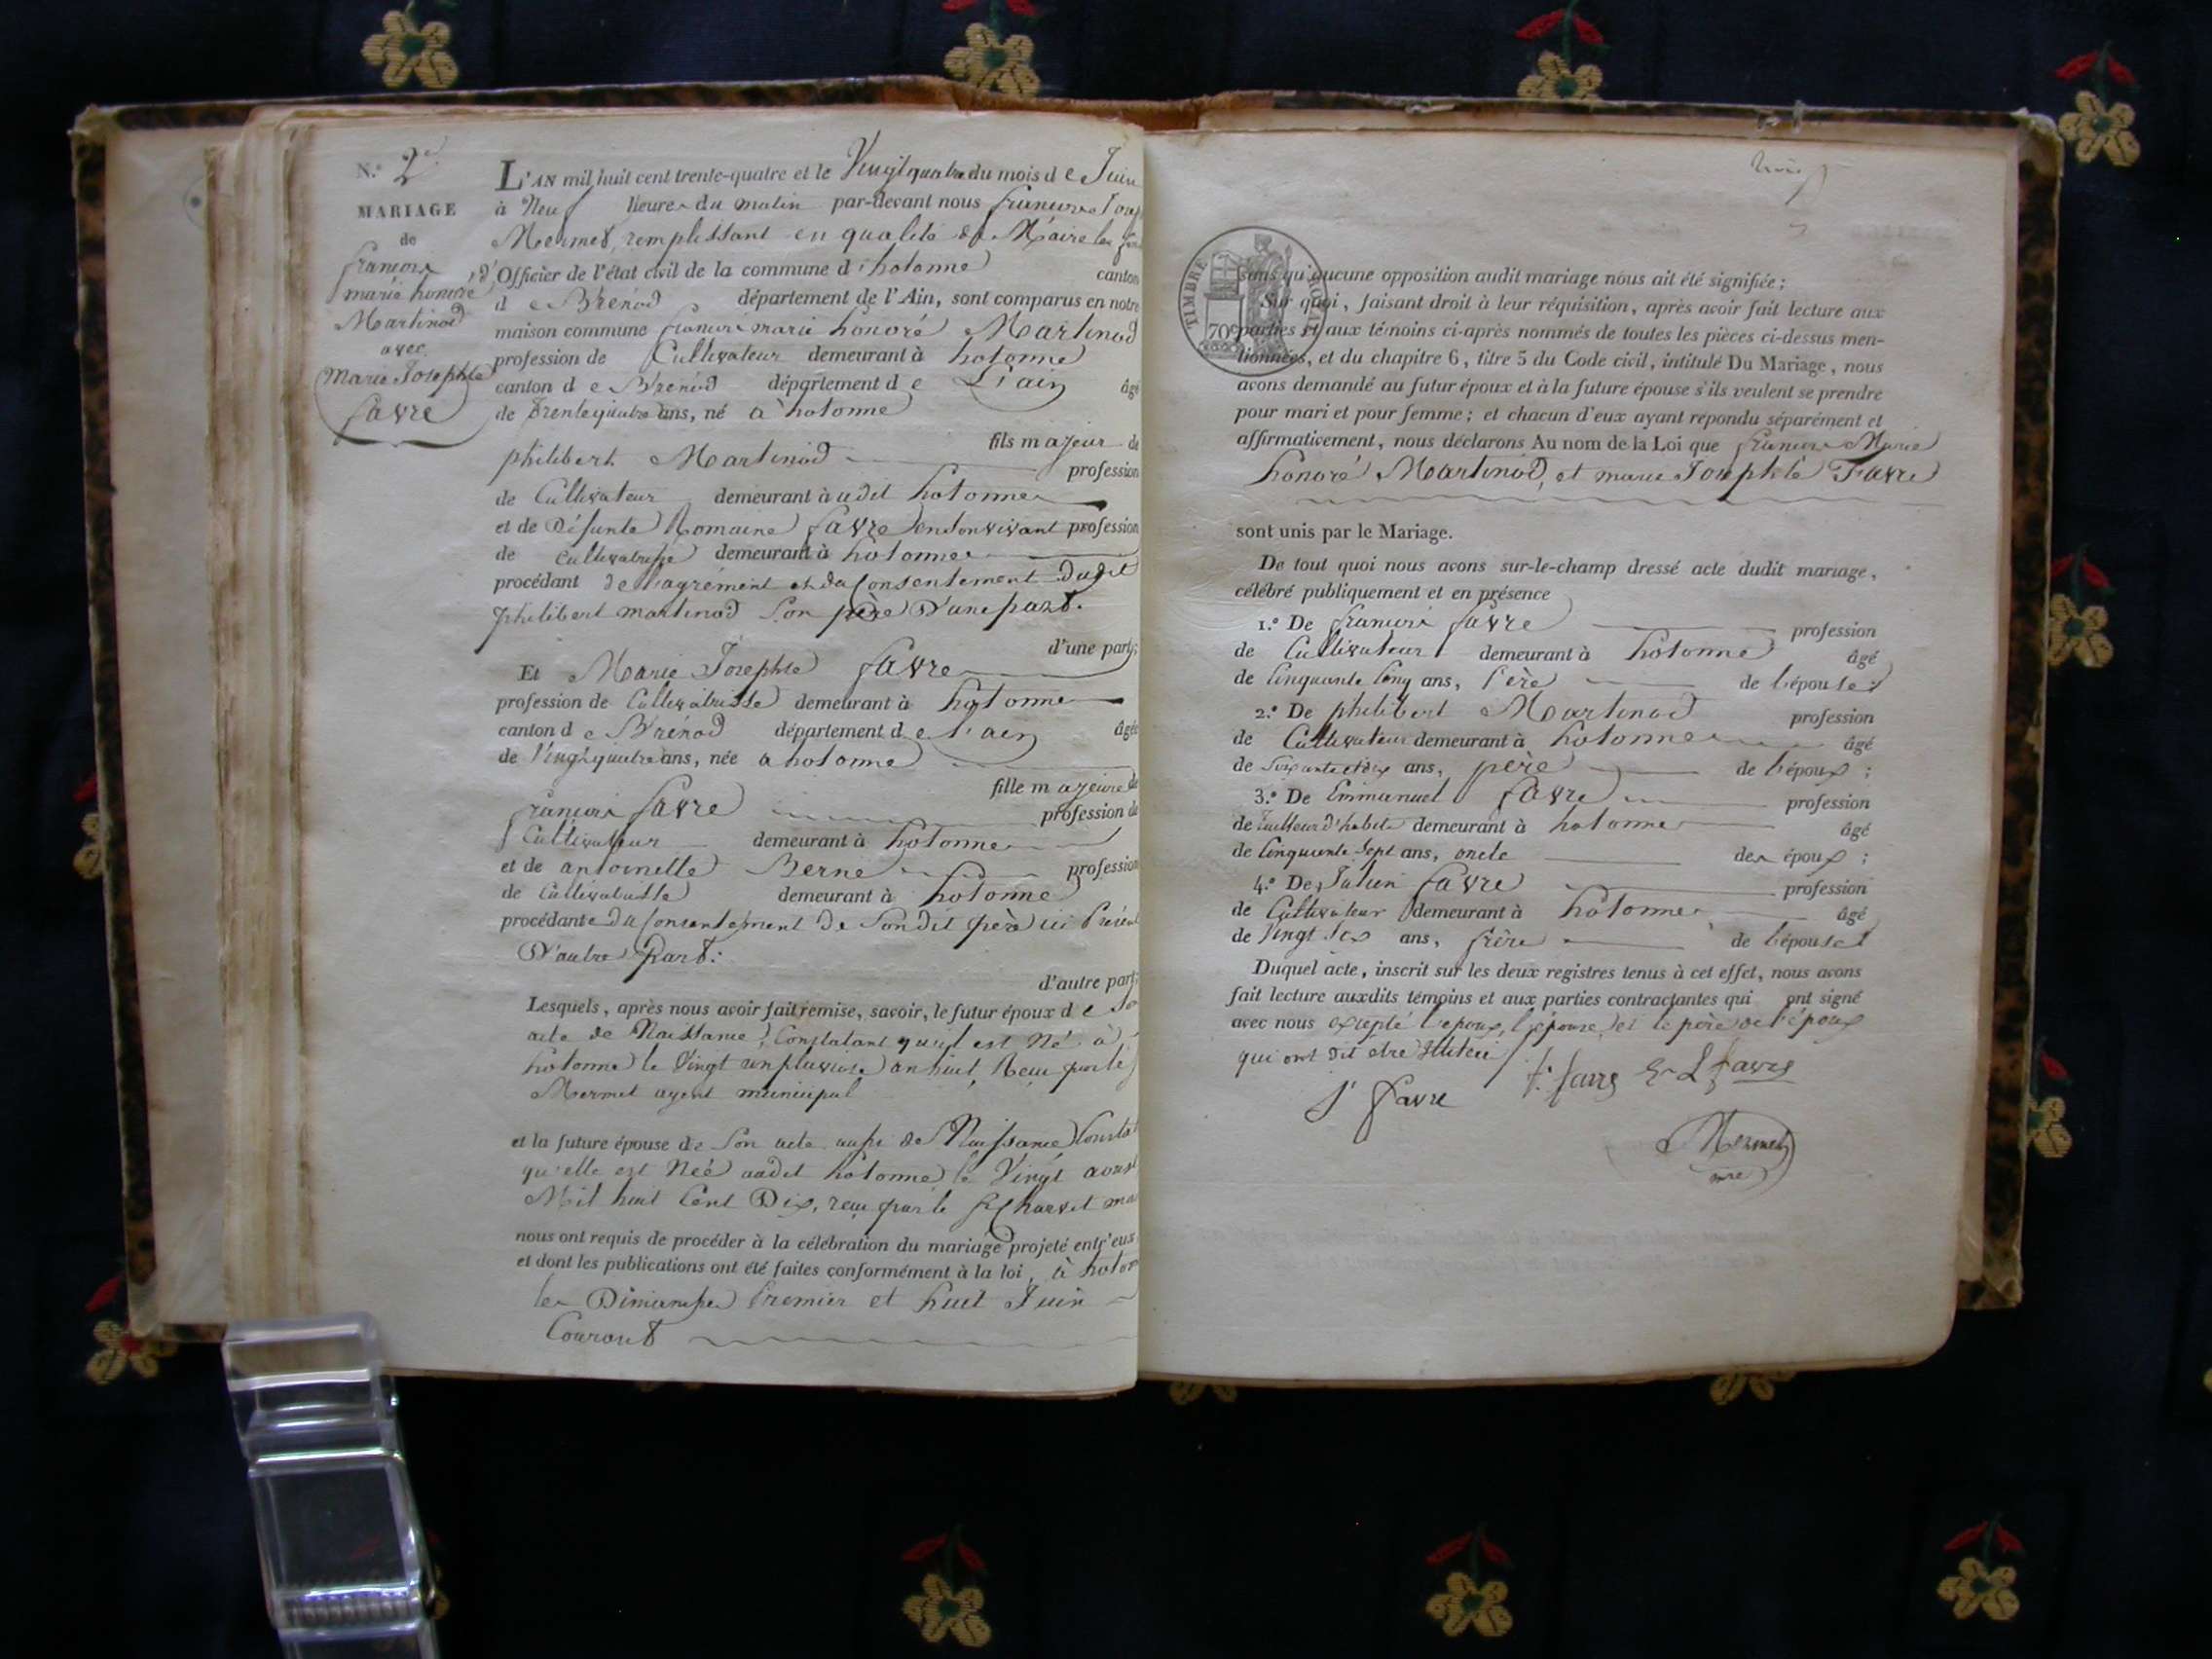 N.º 2e
MARIAGE
de
françois
marie honoré
Martinod
avec
Marie Josephte
favre
L'AN mil huit cent trente-quatre et le Vingt quatre du mois de Juin
à Neuf heures du matin par-devant nous françois Josep
Mermet, remplissant en qualité de Maire les fon
d'Officier de l'état civil de la commune d'hotonne canton
de Brénod département de l'Ain, sont comparus en notre
maison commune françois marie honoré Martinod
profession de Cultivateur demeurant à hotonne
canton de Brénod département de L'ain âgé
de trente quatre ans, né à hotonne
fils majeur de
philibert Martinod profession
de Cultivateur demeurant à udit hotonne
et de Défunte Romaine favre en son vivant profession
de Cultivatrisse demeurant à hotonne
procédant de l'agrément et du Consentement dudit
philibert martinod Son père D'une part.
d'une part;
Et Marie Josephte favre
profession de Cultivatrisse demeurant à hotonne
canton de Brénod département de l'ain âgée
de Vingt quatre ans, née a hotonne
fille majeure de
françois favre profession de
Cultivateur demeurant à hotonne
et de antoinette Berne profession
de Cultivatrisse demeurant à hotonne
procédante du Consentement De Son dit père ici Présent
D'autre Part:
d'autre part;
Lesquels, après nous avoir fait remise, savoir, le futur époux de So
acte de Naissance, Constatant qu'il est Né à
hotonne le Vingt un pluviose an huit, Reçu par le
Mermet agent municipal
et la future épouse de Son acte aussi de Naissance Constat
qu'elle est Née audit hotonne le Vingt aoust
Mil huit Cent Dix, reçu par le Charvet ma
nous ont requis de procéder à la célébration du mariage projeté entr'eux
et dont les publications ont été faites conformément à la loi, à hoton
les Dimanches Premier et huit Juin
Courant
TIMBRE ROYAL
70c
sans qu'aucune opposition audit mariage nous ait été signifiée;
Sur quoi, faisant droit à leur réquisition, après avoir fait lecture aux
parties et aux témoins ci-après nommés de toutes les pièces ci-dessus men-
tionnées, et du chapitre 6, titre 5 du Code civil, intitulé Du Mariage, nous
avons demandé au futur époux et à la future épouse s'ils veulent se prendre
pour mari et pour femme; et chacun d'eux ayant répondu séparément et
affirmativement, nous déclarons Au nom de la Loi que françois Marie
honoré Martinod, et marie Josephte Favre
sont unis par le Mariage.
De tout quoi nous avons sur-le-champ dressé acte dudit mariage,
célébré publiquement et en présence
1.º De françois favre profession
de Cultivateur demeurant à hotonne âgé
de Cinquante Cinq ans, Père de l'épouse;
2.º De philibert Martinod profession
de Cultivateur demeurant à hotonne âgé
de Soixante et dix ans, père de l'époux;
3.º De Emmanuel favre profession
de tailleur d'habits demeurant à hotonne âgé
de Cinquante Sept ans, oncle des époux;
4.º De Julien favre profession
de Cultivateur demeurant à hotonne âgé
de Vingt Six ans, frère de l'épouse
Duquel acte, inscrit sur les deux registres tenus à cet effet, nous avons
fait lecture auxdits témoins et aux parties contractantes qui ont signé
avec nous excepté l'époux, l'épouse et le père de l'époux
qui ont dit etre illitéré
J favre f. favre E L favre
Mermet
mre